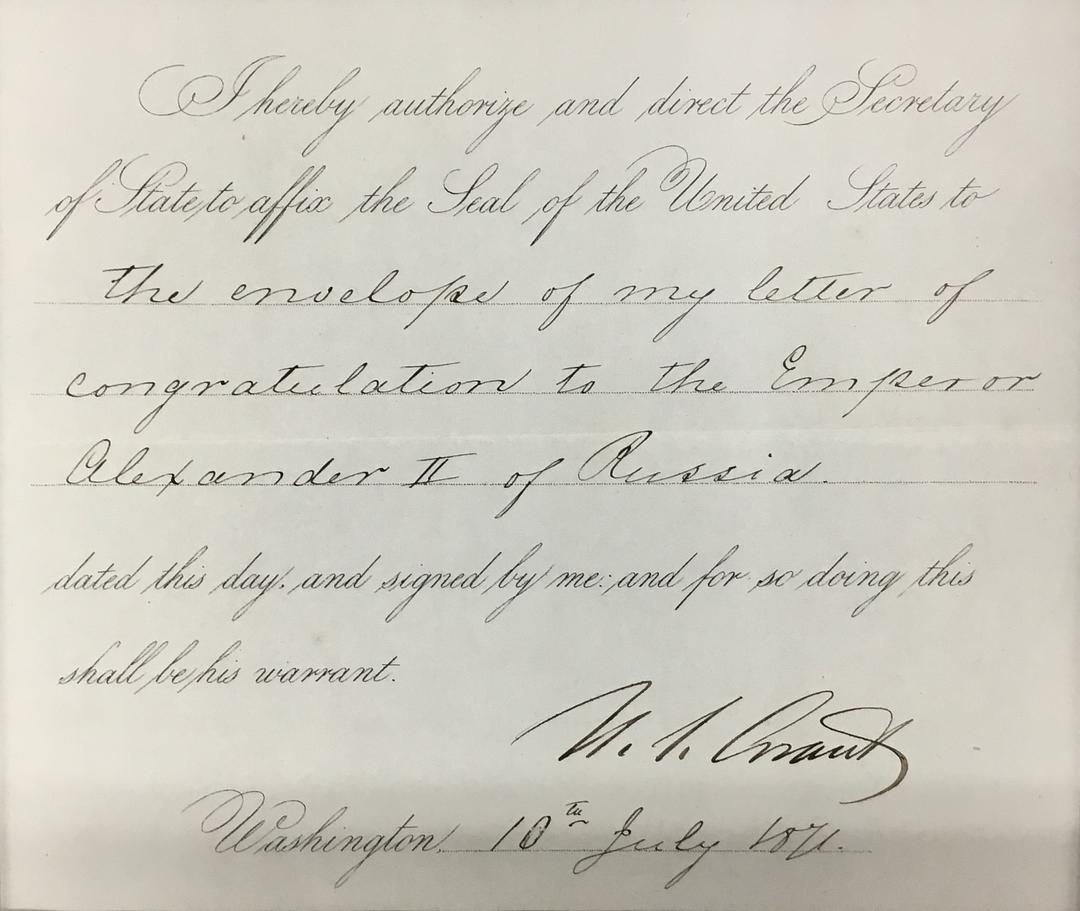 I hereby authorize and direct the Secretary
of State to affix the Seal of the United States to
the envelope of my letter of
congratulation to the Emperor
Alexander II of Russia.
dated this day, and signed by me: and for so doing this
shall be his warrant.
U. S. Grant
Washington, 10th July 1871.